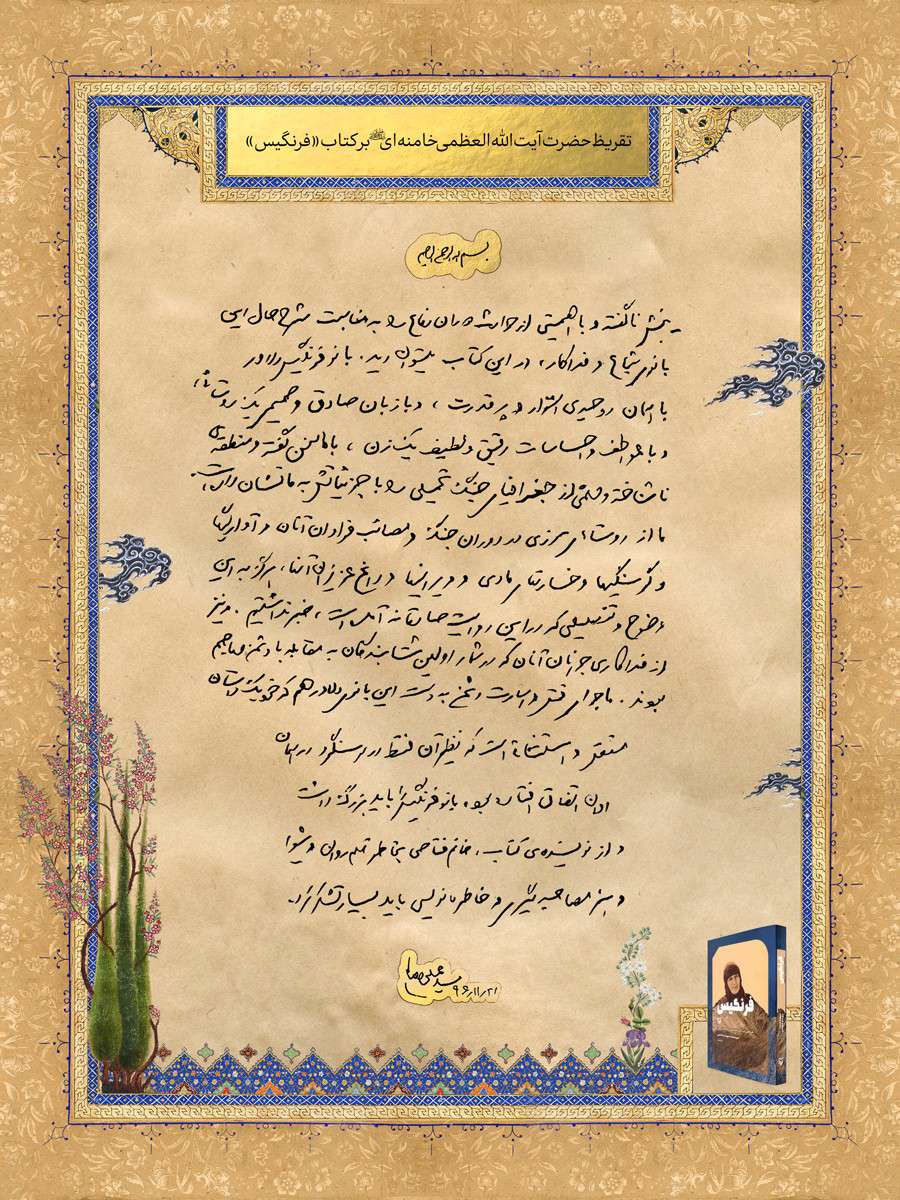 تقریظ حضرت آیت الله العظمی خامنه ای بر کتاب «فرنگیس»
بسم الله الرحمن الرحیم
بخش ناگفته و با اهمیتی از حوادث دوران دفاع را به مناسبت شرح حال این
بانوی شجاع و فداکار، در این کتاب میتوان دید. بانو فرنگیس دلاور
با همان روحیه‌ی استوار و پر قدرت، و با زبان صادق و صمیمی یک روستائی،
و با عواطف و احساسات رقیق و لطیف یک زن، با ما سخن گفته و منطقه‌ی
ناشناخته و مهمی از جغرافیای جنگ تحمیلی را با جزئیاتش به ما نشان داده است.
ما از روستاهای مرزی در دوران جنگ و مصائب فراوان آنان و آوارگیها
و گرسنگیها و خسارتهای مادی و ویرانیها و داغ عزیزان آنها، هرگز به این
وضوح و تفصیلی که در این روایت صادقانه آمده است، خبر نداشتیم. و نیز
از فداکاری جوانان آنان که در شمار اولین شتابندگان به مقابله با دشمن مهاجم
بودند. ماجرای قتل و اسارت دشمن به دست این بانوی دلاور هم که خود یک داستان
مستقل و استثنائی است که نظیر آن فقط در سوسنگرد در همان
اوان اتفاق افتاده بود. بانو فرنگیس را باید بزرگ داشت
و از نویسنده‌ی کتاب، خانم فتاحی بخاطر قلم روان و شیوا
و هنر مصاحبه گیری و خاطره نویسی باید بسیار تشکر کرد.
سید علی خامنه‌ای
۹۶/۱۱/۲۱
فرنگیس